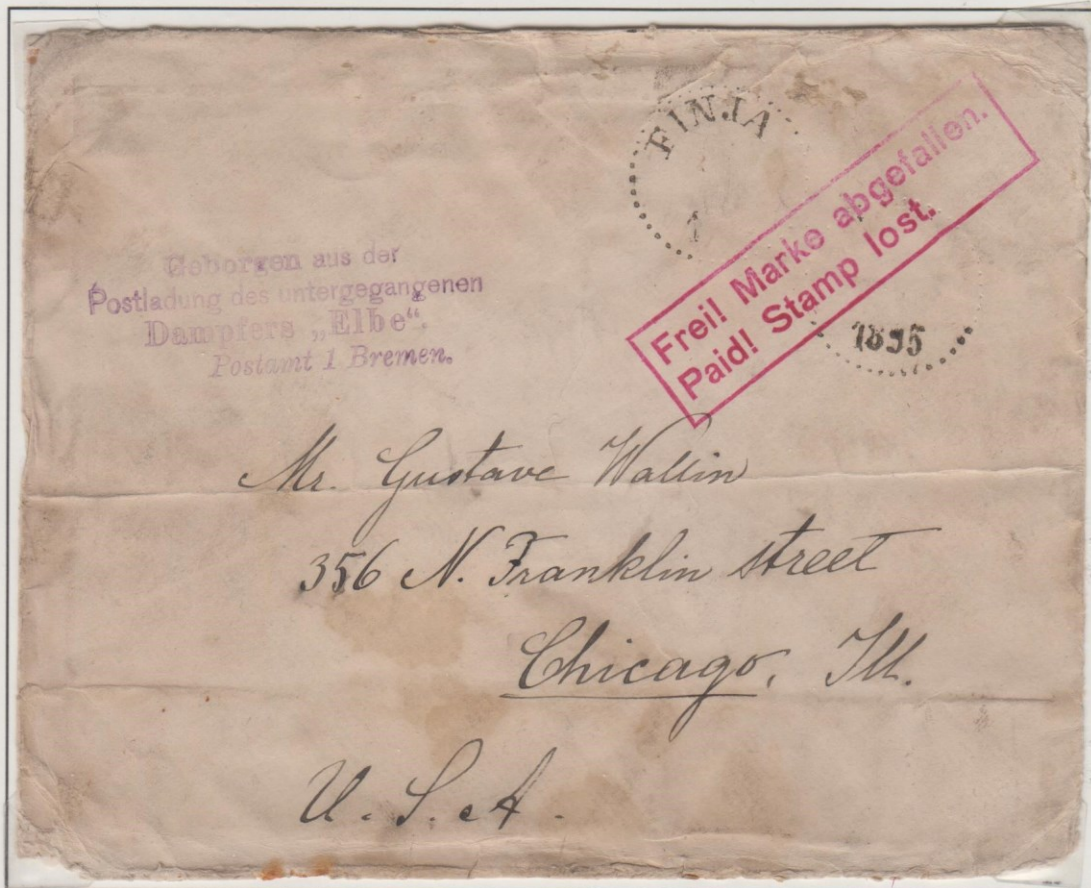 FINJA
1
1895
Frei! Marke abgefallen.
Paid! Stamp lost.
Geborgen aus der
Postladung des untergegangenen
Dampfers „Elbe“.
Postamt 1 Bremen.
Mr. Gustave Wallin
356 N. Franklin street
Chicago, Ill.
U. S. A.